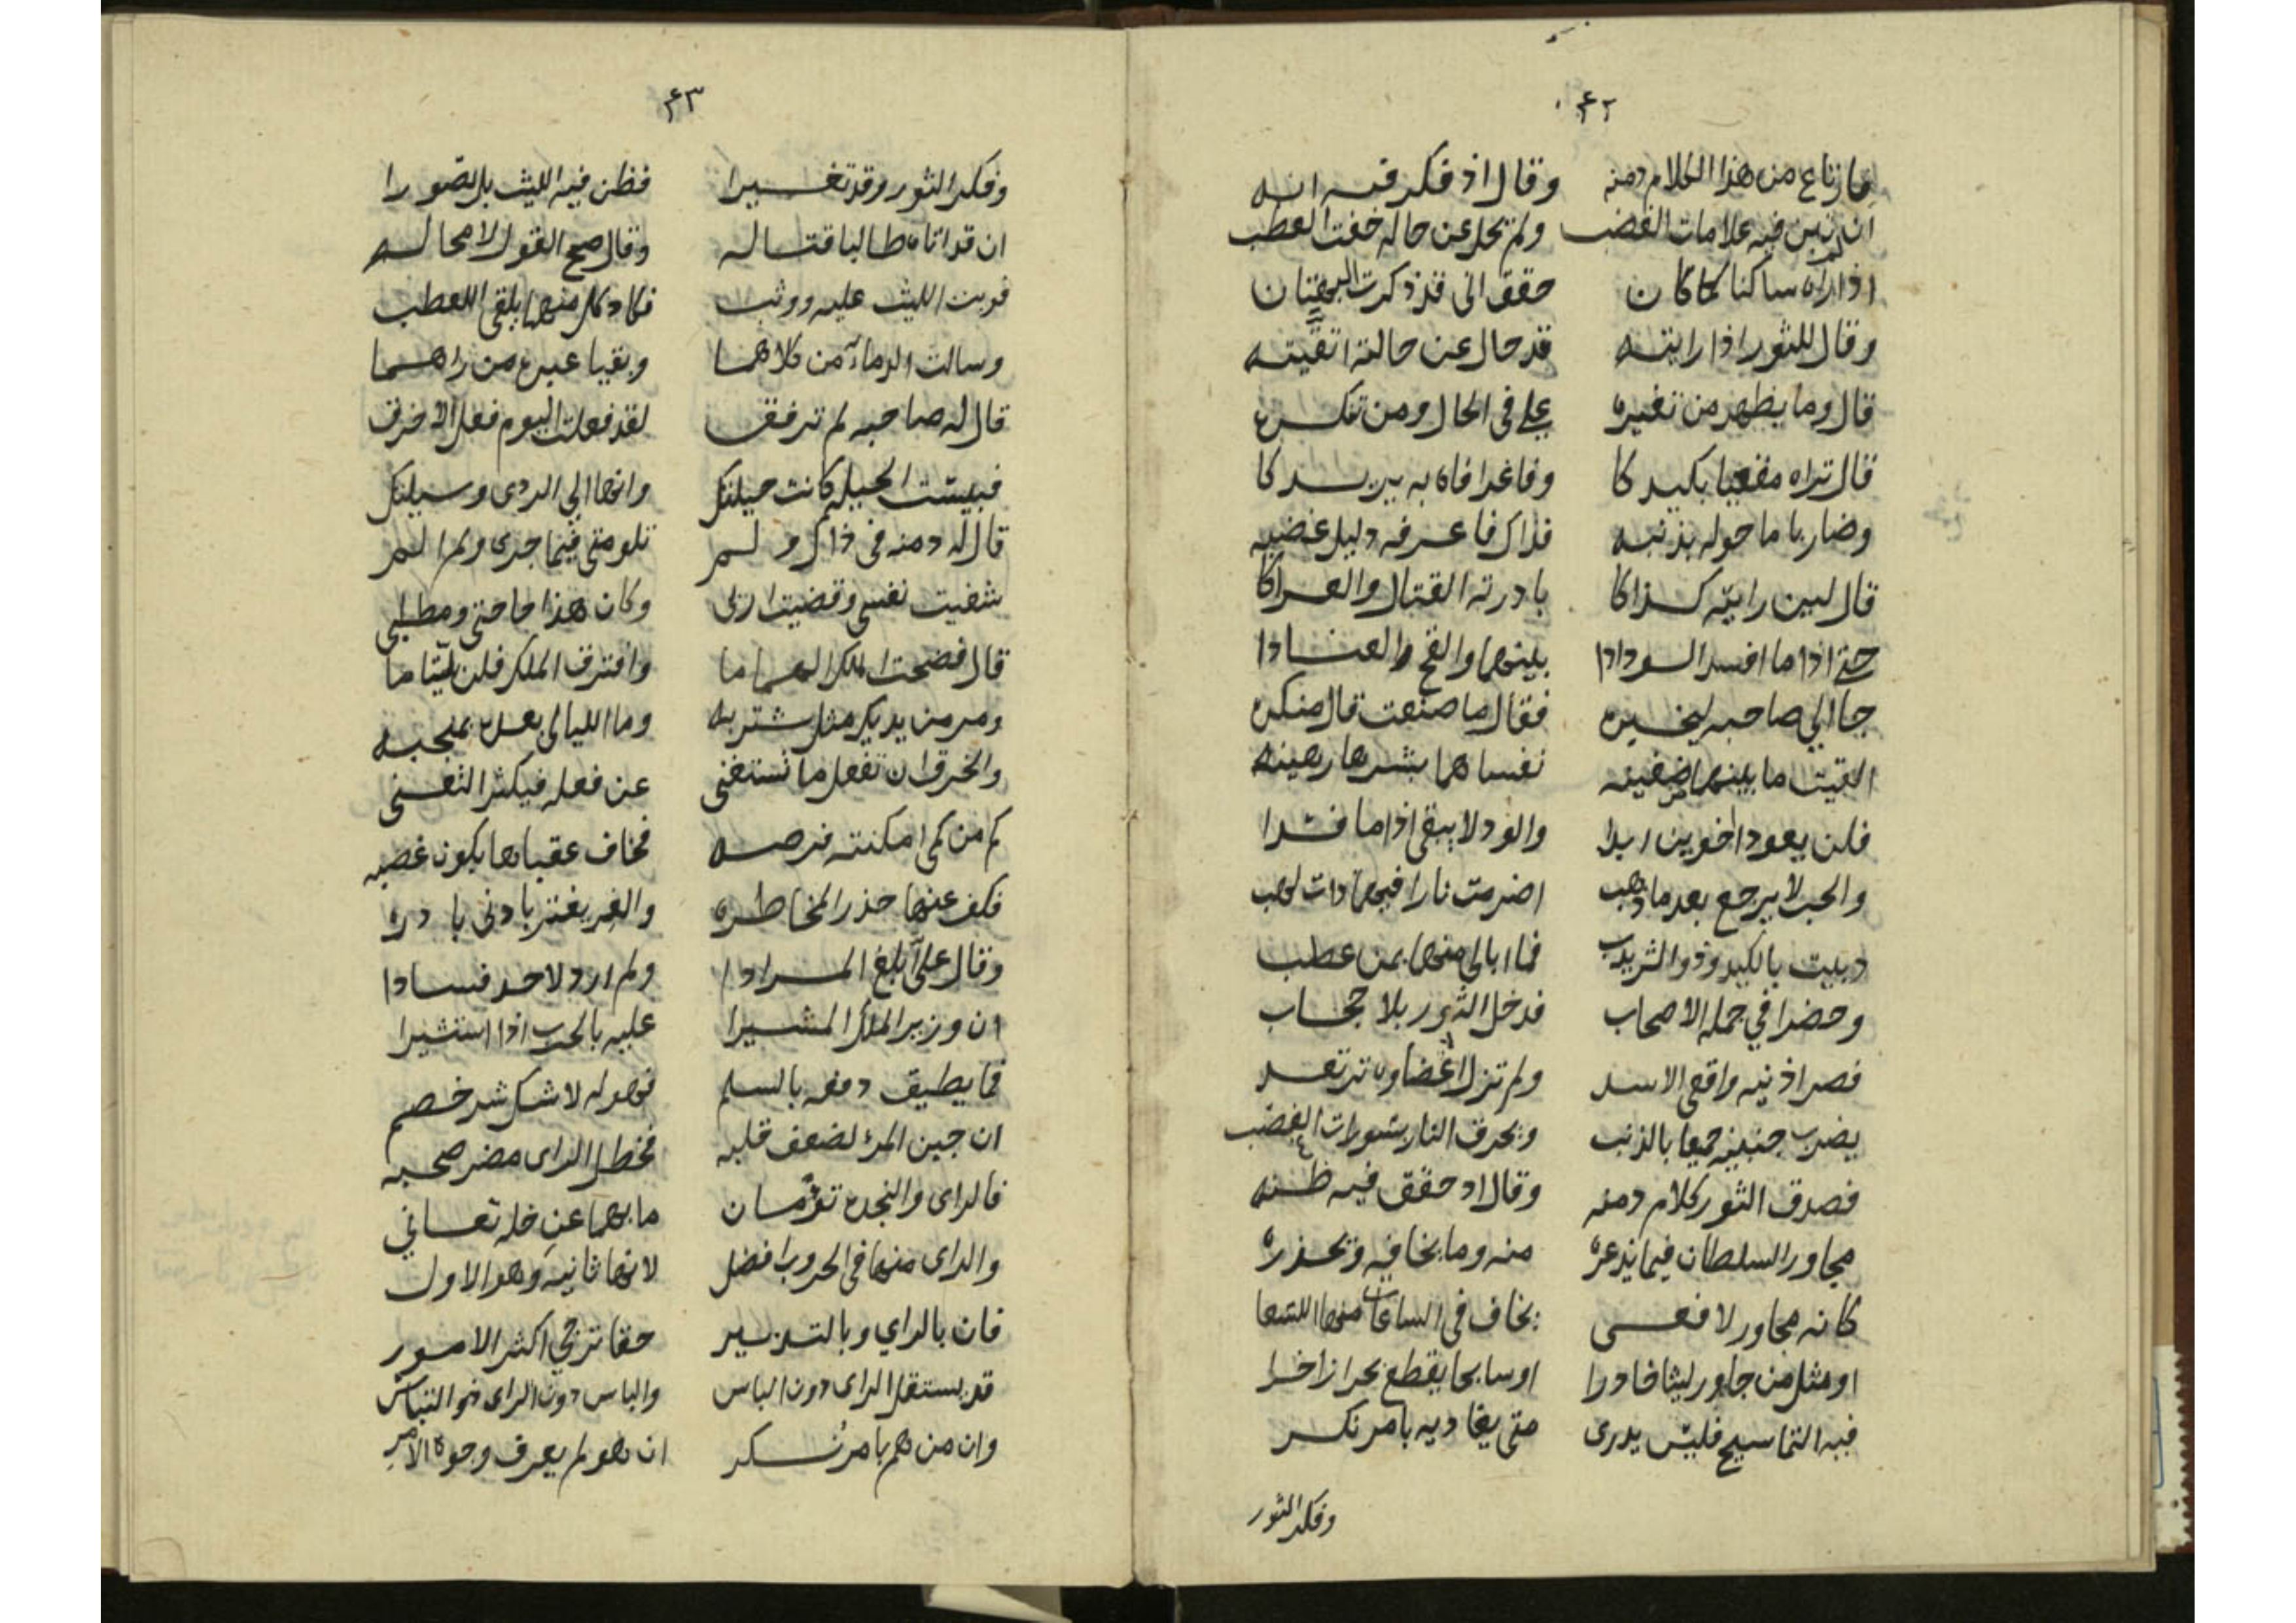 ٤٢
فارتاع من هذا الكلام دمنه وقال اذ فكر فيه انه
ان تبن فيه علامات الغضب ولم تحل عن حاله خفت العطب
اذا راه ساكنا كما كان حقق انى قد ذكرت البهتان
وقال للثور اذا رايته قد حال عن حالته اتقيته
قال وما يظهر من تغيره علي فى الحال ومن تنكره
قال تراه مقعيا بكيدكا وفاغرا فاه به يريدكا
وضاربا ما حوله بذنبه فذاك فاعرفه دليل غضبه
قال لين رايته كذاكا بادرته القتال والعراكا
حتى اذا ما افسد الودادا بينهما والقح العنادا
جا الي صاحبه ليخبره فقال ما صنعت قال منكره
القيت ما بينهما ضغينه نفساهما بشرها رهينه
فلن يعودا اخوين ابدا والود لا يبقى اذا ما فسدا
والحب لا يرجع بعد ما ذهب اضرمت نارا فيهما ذات لهب
دببت بالكيد وذو الشر يدب فما ابالى منهما بمن عطب
وحضرا في جمله الاصحاب فدخل الثور بلا حجاب
فصر اذنيه واقعى الاسد ولم تزل اعضاوه ترتعد
يضرب جنبيه جميعا بالذنب ويحرق النار بثورات الغضب
فصدق الثور كلام دمنه وقال اذ حقق فيه ظنه
مجاور السلطان فيما يذعره منه وما يخافه ويحذره
كانه مجاور لافعى يخاف فى الساعات منها اللسعا
او مثل من جاور ليثا خادرا او سابحا يقطع بحرا زاخرا
فيه التماسيح فليس يدرى متى يفاديه بامر نكر
وفكر الثور
٤٣
وفكر الثور وقد تغيرا فظن فيه الليث بل تصورا
ان قد اتاه طالبا قتاله وقال صح القول لا محاله
فوبت الليث عليه ووثب فكاد كل منهما يلقى العطب
وسالت الدماء من كلاهما وبقيا عبرة من راهما
قال له صاحبه لم ترفق لقد فعلت اليوم فعل الاخرق
فبيست الحيله كانت حيلتك وانها الي الردى وسيلتك
قال له دمنه فى ذاك ولم تلومنى فيما جرى ولم الم
شفيت نفسى وقضيت اربى وكان هذا حاجتى ومطلبى
قال فضحت الملك الهماما وافترق الملك فلن يلتاما
ومر من يديك مثل شتربه وما الليالى بعده بمنجبه
والخرق ان تفعل ما تستغنى عن فعله فيكثر التعنى
كم من كمى امكنته فرصه فخاف عقباها يكون غصه
فكف عنها حذر المخاطره والغر يغتر بادنى بادره
وقال على ابلغ المرادا ولم ارد لاحد فسادا
ان وزير الملك المشيرا عليه بالحرب اذا استشيرا
فما يطيق دفعه بالسلم فهو له لا شك شر خصم
ان جبن المرء لضعف قلبه فخطل الراى مضر صحبه
فالراى والنجده توّمان ما بهما عن خله تعانى
والراى منهما فى الحروب افضل لانها ثانيه وهو الاول
فان بالراي وبالتدبير حقا ترجي اكثر الامور
قد يستقل الراى دون الباس والباس دون الراى ذو التباس
وان من هم بامر نكر ان هو لم يعرف وجوه الامر